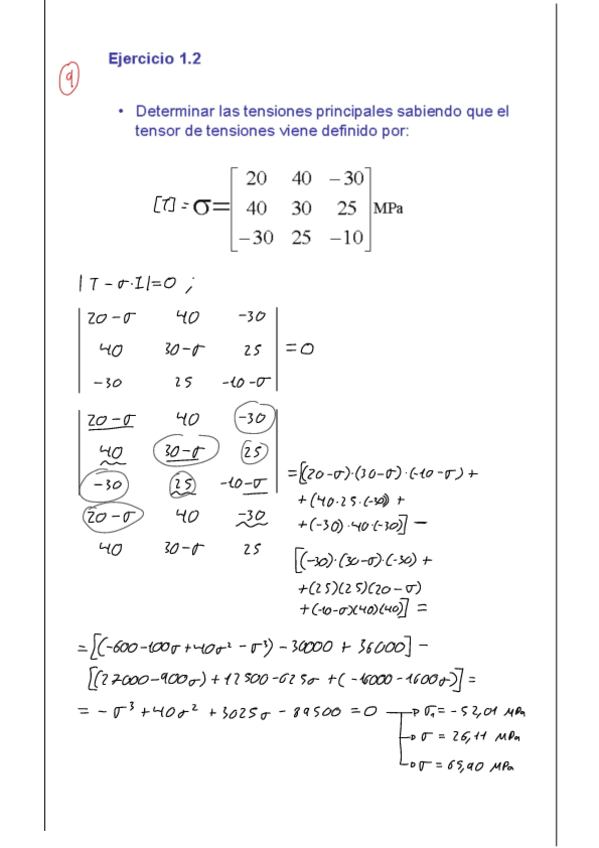 Ejercicio 1.2
9
• Determinar las tensiones principales sabiendo que el
tensor de tensiones viene definido por:
[T] = σ= [20 40 −30
40 30 25
−30 25 −10] MPa
|T - σ·I|=0 ;
20-σ 40 -30
40 30-σ 25 = 0
-30 25 -10-σ
20-σ 40 -30
40 30-σ 25
-30 25 -10-σ
20-σ 40 -30
40 30-σ 25
=[(20-σ)·(30-σ)·(-10-σ) +
+(40·25·(-30) +
+(-30)·40·(-30)] -
[(-30)·(30-σ)·(-30) +
+(25)(25)(20-σ)
+(-10-σ)(40)(40)] =
=[(-600-100σ+40σ² - σ³) - 30000 + 36000] -
[(27000-900σ)+12500-625σ +(-16000-1600σ)] =
= -σ³+40σ² +3025σ - 89500 =0 → σ₁= -52,01 MPa
→ σ = 26,11 MPa
→ σ = 65,90 MPa